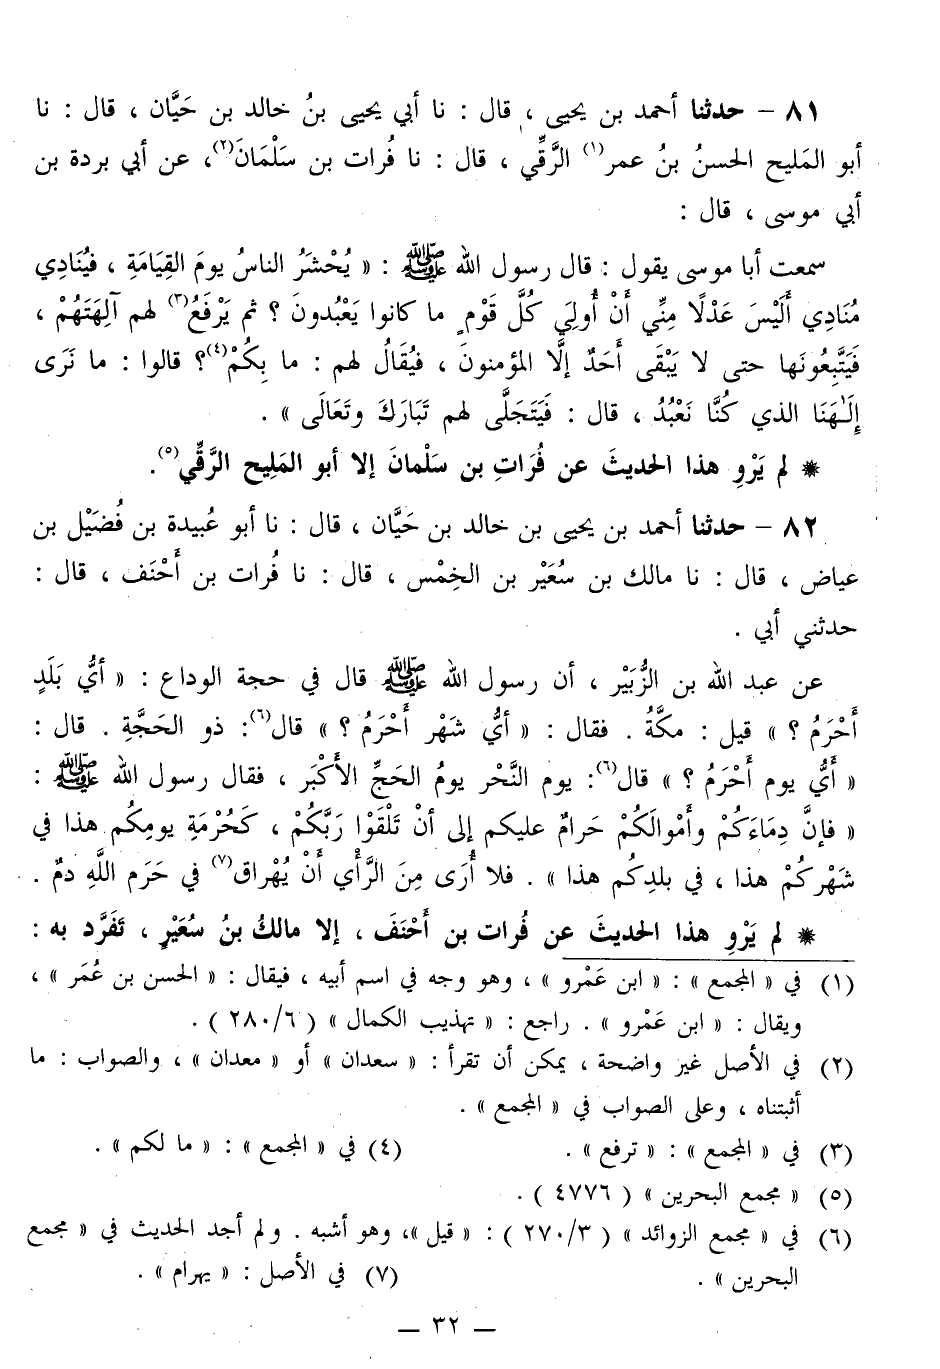 ٨١ – حدثنا أحمد بن يحيى ، قال : نا أبي يحيى بنُ خالد بن حَيَّان ، قال : نا
أبو المَليح الحسنُ بنُ عمر(١) الرَّقِّي ، قال : نا فُرات بن سَلْمَانَ(٢)، عن أبي بردة بن
أبي موسى ، قال :
سمعت أبا موسى يقول : قال رسول الله ﷺ : « يُحْشَرُ الناسُ يومَ القِيَامَةِ ، فيُنَادِي
مُنَادِي أَلَيْسَ عَدْلًا مِنِّي أَنْ أُولِيَ كُلَّ قَوْمٍ ما كانوا يَعْبُدونَ ؟ ثم يَرْفَعُ(٣) لهم آلِهَتَهُمْ ،
فَيَتَّبِعُونَها حتى لا يَبْقَى أَحَدٌ إلَّا المؤمنونَ ، فيُقَالُ لهم : ما بِكُمْ(٤)؟ قالوا : ما نَرَى
إِلَـٰهَنَا الذي كُنَّا نَعْبُدُ ، قال : فَيَتَجَلَّى لهم تَبَارَكَ وتَعَالَى » .
* لم يَرْوِ هذا الحديثَ عن فُرَاتِ بن سَلْمانَ إلا أبو المَلِيح الرَّقِّي(٥).
٨٢ – حدثنا أحمد بن يحيى بن خالد بن حَيَّان ، قال : نا أبو عُبيدة بن فُضَيْل بن
عياض ، قال : نا مالك بن سُعَيْر بن الخِمْس ، قال : نا فُرات بن أَحْنَف ، قال :
حدثني أبي .
عن عبد الله بن الزُّبَيْر ، أن رسول الله ﷺ قال في حجة الوداع : « أيُّ بَلَدٍ
أَحْرَمُ ؟ » قيل : مكَّةُ . فقال : « أيُّ شَهْر أَحْرَمُ ؟ » قال(٦): ذو الحَجَّةِ . قال :
« أَيُّ يوم أَحْرَمُ ؟ » قال(٦): يوم النَّحْر يومُ الحَجِّ الأَكْبَر ، فقال رسول الله ﷺ :
« فإنَّ دِمَاءَكُمْ وأَمْوالَكُمْ حَرامٌ عليكم إلى أنْ تَلْقَوْا رَبَّكُمْ ، كَحُرْمَةِ يومِكُم هذا في
شَهْرِكُمْ هذا ، في بلدِكُم هذا » . فلا أُرَى مِنَ الرَّأْي أَنْ يُهْراق(٧) في حَرَم اللَّهِ دمٌ .
* لم يَرْوِ هذا الحديثَ عن فُرات بن أَحْنَفَ ، إلا مالكُ بنُ سُعَيْرٍ ، تَفَرَّد به :
(١) في « المجمع » : « ابن عَمْرو » ، وهو وجه في اسم أبيه ، فيقال : « الحسن بن عُمَر » ،
ويقال : « ابن عَمْرو » . راجع : « تهذيب الكمال » ( ٢٨٠/٦ ) .
(٢) في الأصل غير واضحة ، يمكن أن تقرأ : « سعدان » أو « معدان » ، والصواب : ما
أثبتناه ، وعلى الصواب في « المجمع » .
(٣) في « المجمع » : « ترفع » . (٤) في « المجمع » : « ما لكم » .
(٥) « مجمع البحرين » ( ٤٧٧٦ ) .
(٦) في « مجمع الزوائد » ( ٢٧٠/٣ ) : « قيل »، وهو أشبه . ولم أجد الحديث في « مجمع
البحرين » . (٧) في الأصل : « يهرام » .
— ٣٢ —